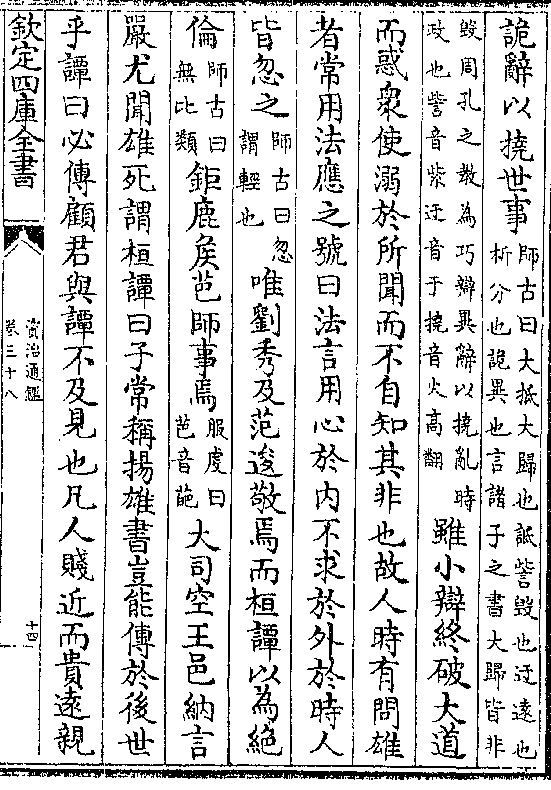 詭辭以撓世事師古曰大抵大歸也詆訾毀也迂遠也析分也詭異也言諸子之書大歸皆非
毀周孔之教為巧辯異辭以撓亂時政也訾音紫迂音于撓音火高翻雖小辯終破大道
而惑衆使溺於所聞而不自知其非也故人時有問雄
者常用法應之號曰法言用心於內不求於外於時人
皆忽之師古曰忽謂輕也唯劉秀及范逡敬焉而桓譚以為絕
倫師古曰無比類鉅鹿矦芭師事焉服虔曰芭音葩大司空王邑納言
嚴尤聞雄死謂桓譚曰子常稱揚雄書豈能傳於後世
乎譚曰必傳顧君與譚不及見也凡人賤近而貴遠親
欽定四庫全書
資治通鑑
卷三十八
十四